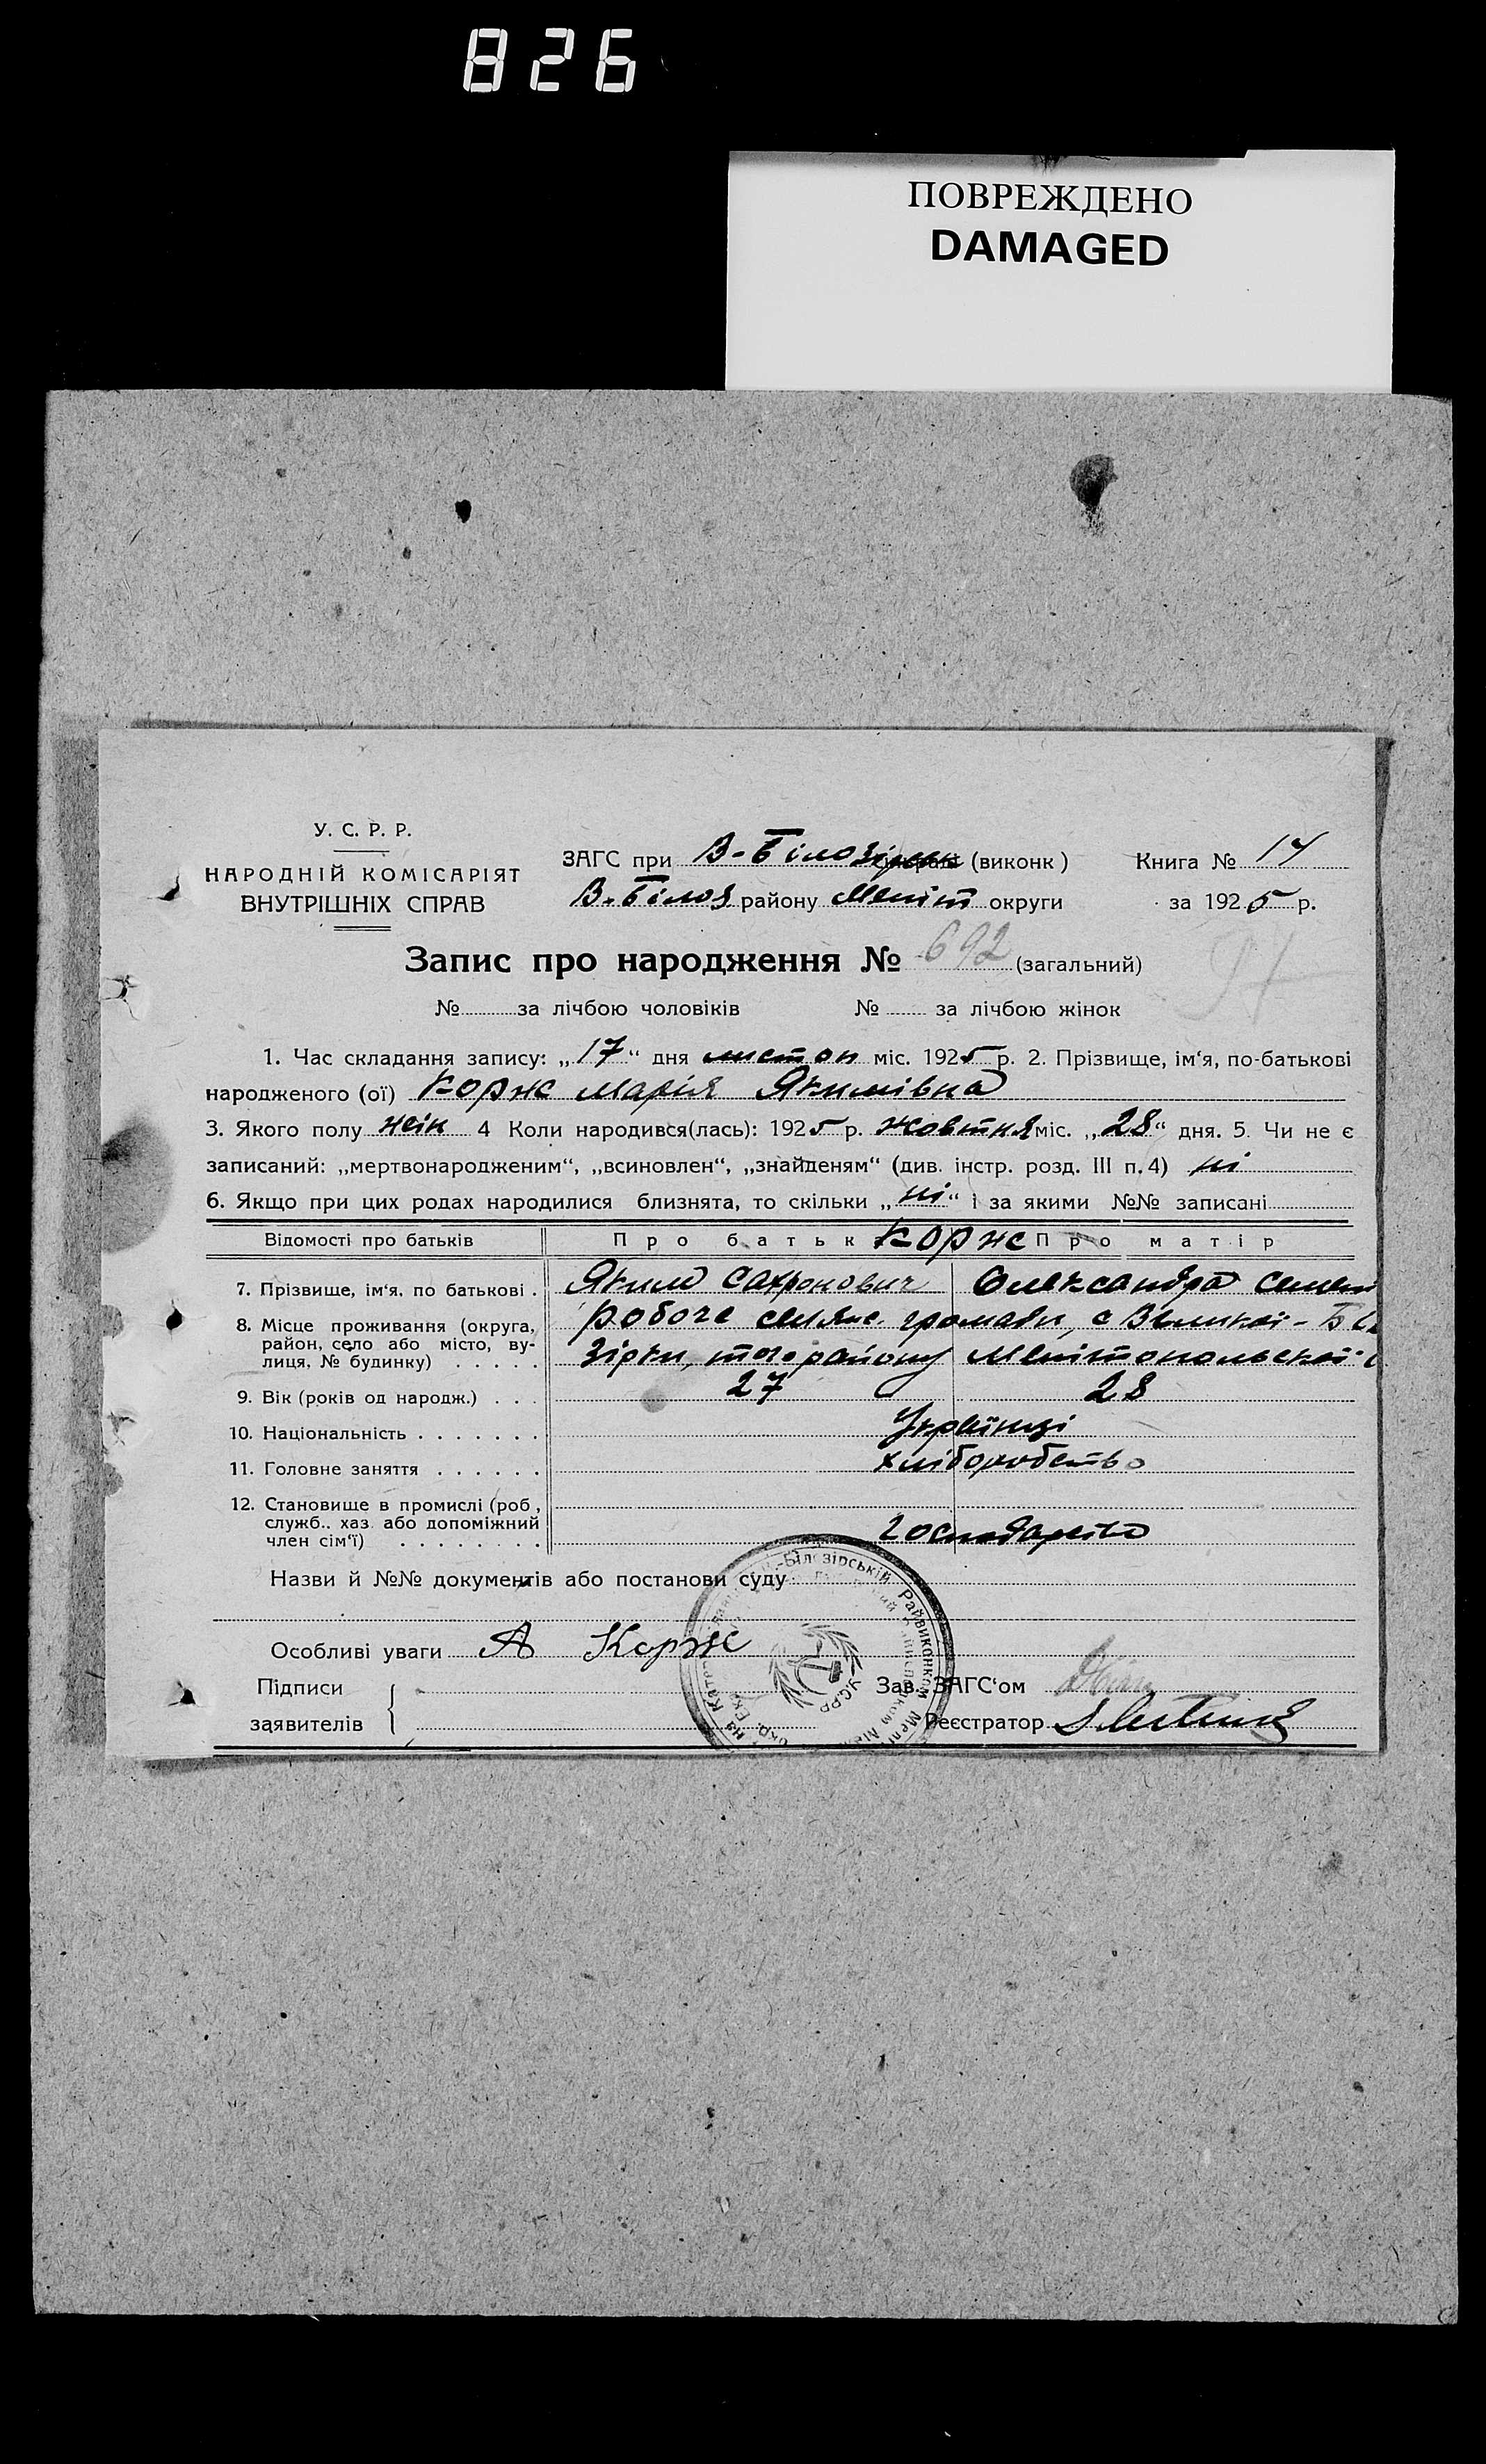 826
ПОВРЕЖДЕНО
DAMAGED
У. С. Р. Р.
НАРОДНІЙ КОМІСАРІЯТ
ВНУТРІШНІХ СПРАВ
ЗАГС при В-Білозірськ (виконк)
В-Білоз району Меліт округи
Книга № 14
за 1925 р.
Запис про народження № 692 (загальний)
№ за лічбою чоловіків № за лічбою жінок
1. Час складання запису: „17“ дня листоп міс. 1925 р. 2. Прізвище, ім‘я, по-батькові
народженого (ої) Корж Марія Якимівна
3. Якого полу жін 4 Коли народився(лась): 1925 р. жовтня міс. „28“ дня. 5. Чи не є
записаний: „мертвонародженим“, „всиновлен“, „знайденям“ (див. інстр. розд. III п. 4) ні
6. Якщо при цих родах народилися близнята, то скільки „ні“ і за якими №№ записані
Відомості про батьків Про батьк Корж Про матір
7. Прізвище, ім‘я, по батькові . Яким Сахронович Олександра Семені
8. Місце проживання (округа, район, село або місто, вулиця, № будинку) . . . . . робоче селянс. громади, с Великої-Бі
Зірки, того району Мелітопольської
9. Вік (років од народж.) . . . 27 28
10. Національність . . . . . . . Українці
11. Головне заняття . . . . . . хліборобство
12. Становище в промислі (роб, служб.. хаз. або допоміжний член сім‘ї) . . . . . . . .
Назви й №№ документів або постанови суду
Особливі уваги А Корж
Підписи
заявителів
Зав. ЗАГС‘ом
Реєстратор
Білозірській Райвиконком
УСРР